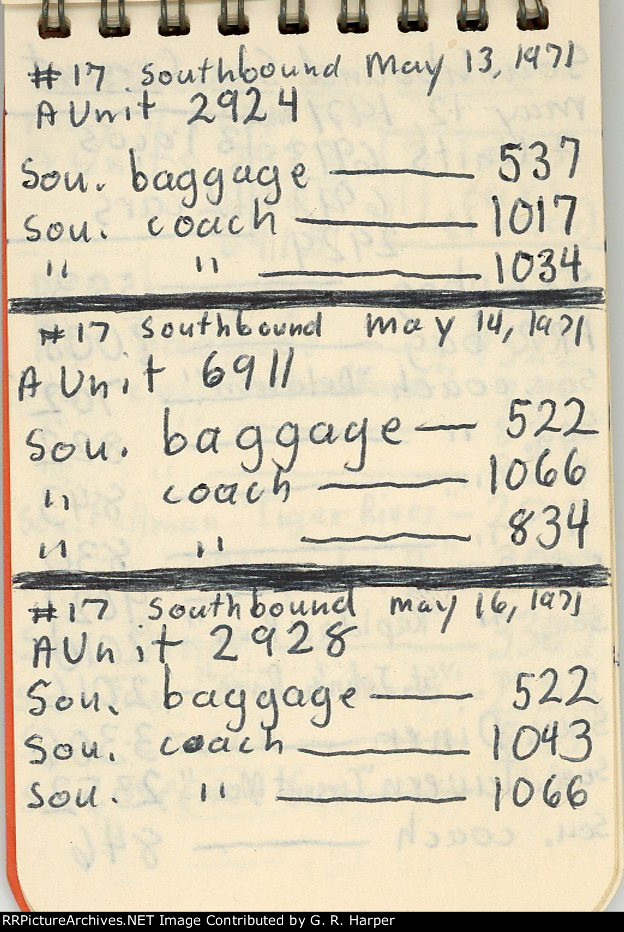 #17 Southbound May 13, 1971
A Unit 2924
Sou. baggage — 537
Sou. coach — 1017
" " — 1034
#17 Southbound May 14, 1971
A Unit 6911
Sou. baggage — 522
" coach — 1066
" " — 834
#17 Southbound May 16, 1971
A Unit 2928
Sou. baggage — 522
Sou. coach — 1043
Sou. " — 1066
RRPictureArchives.NET Image Contributed by G. R. Harper